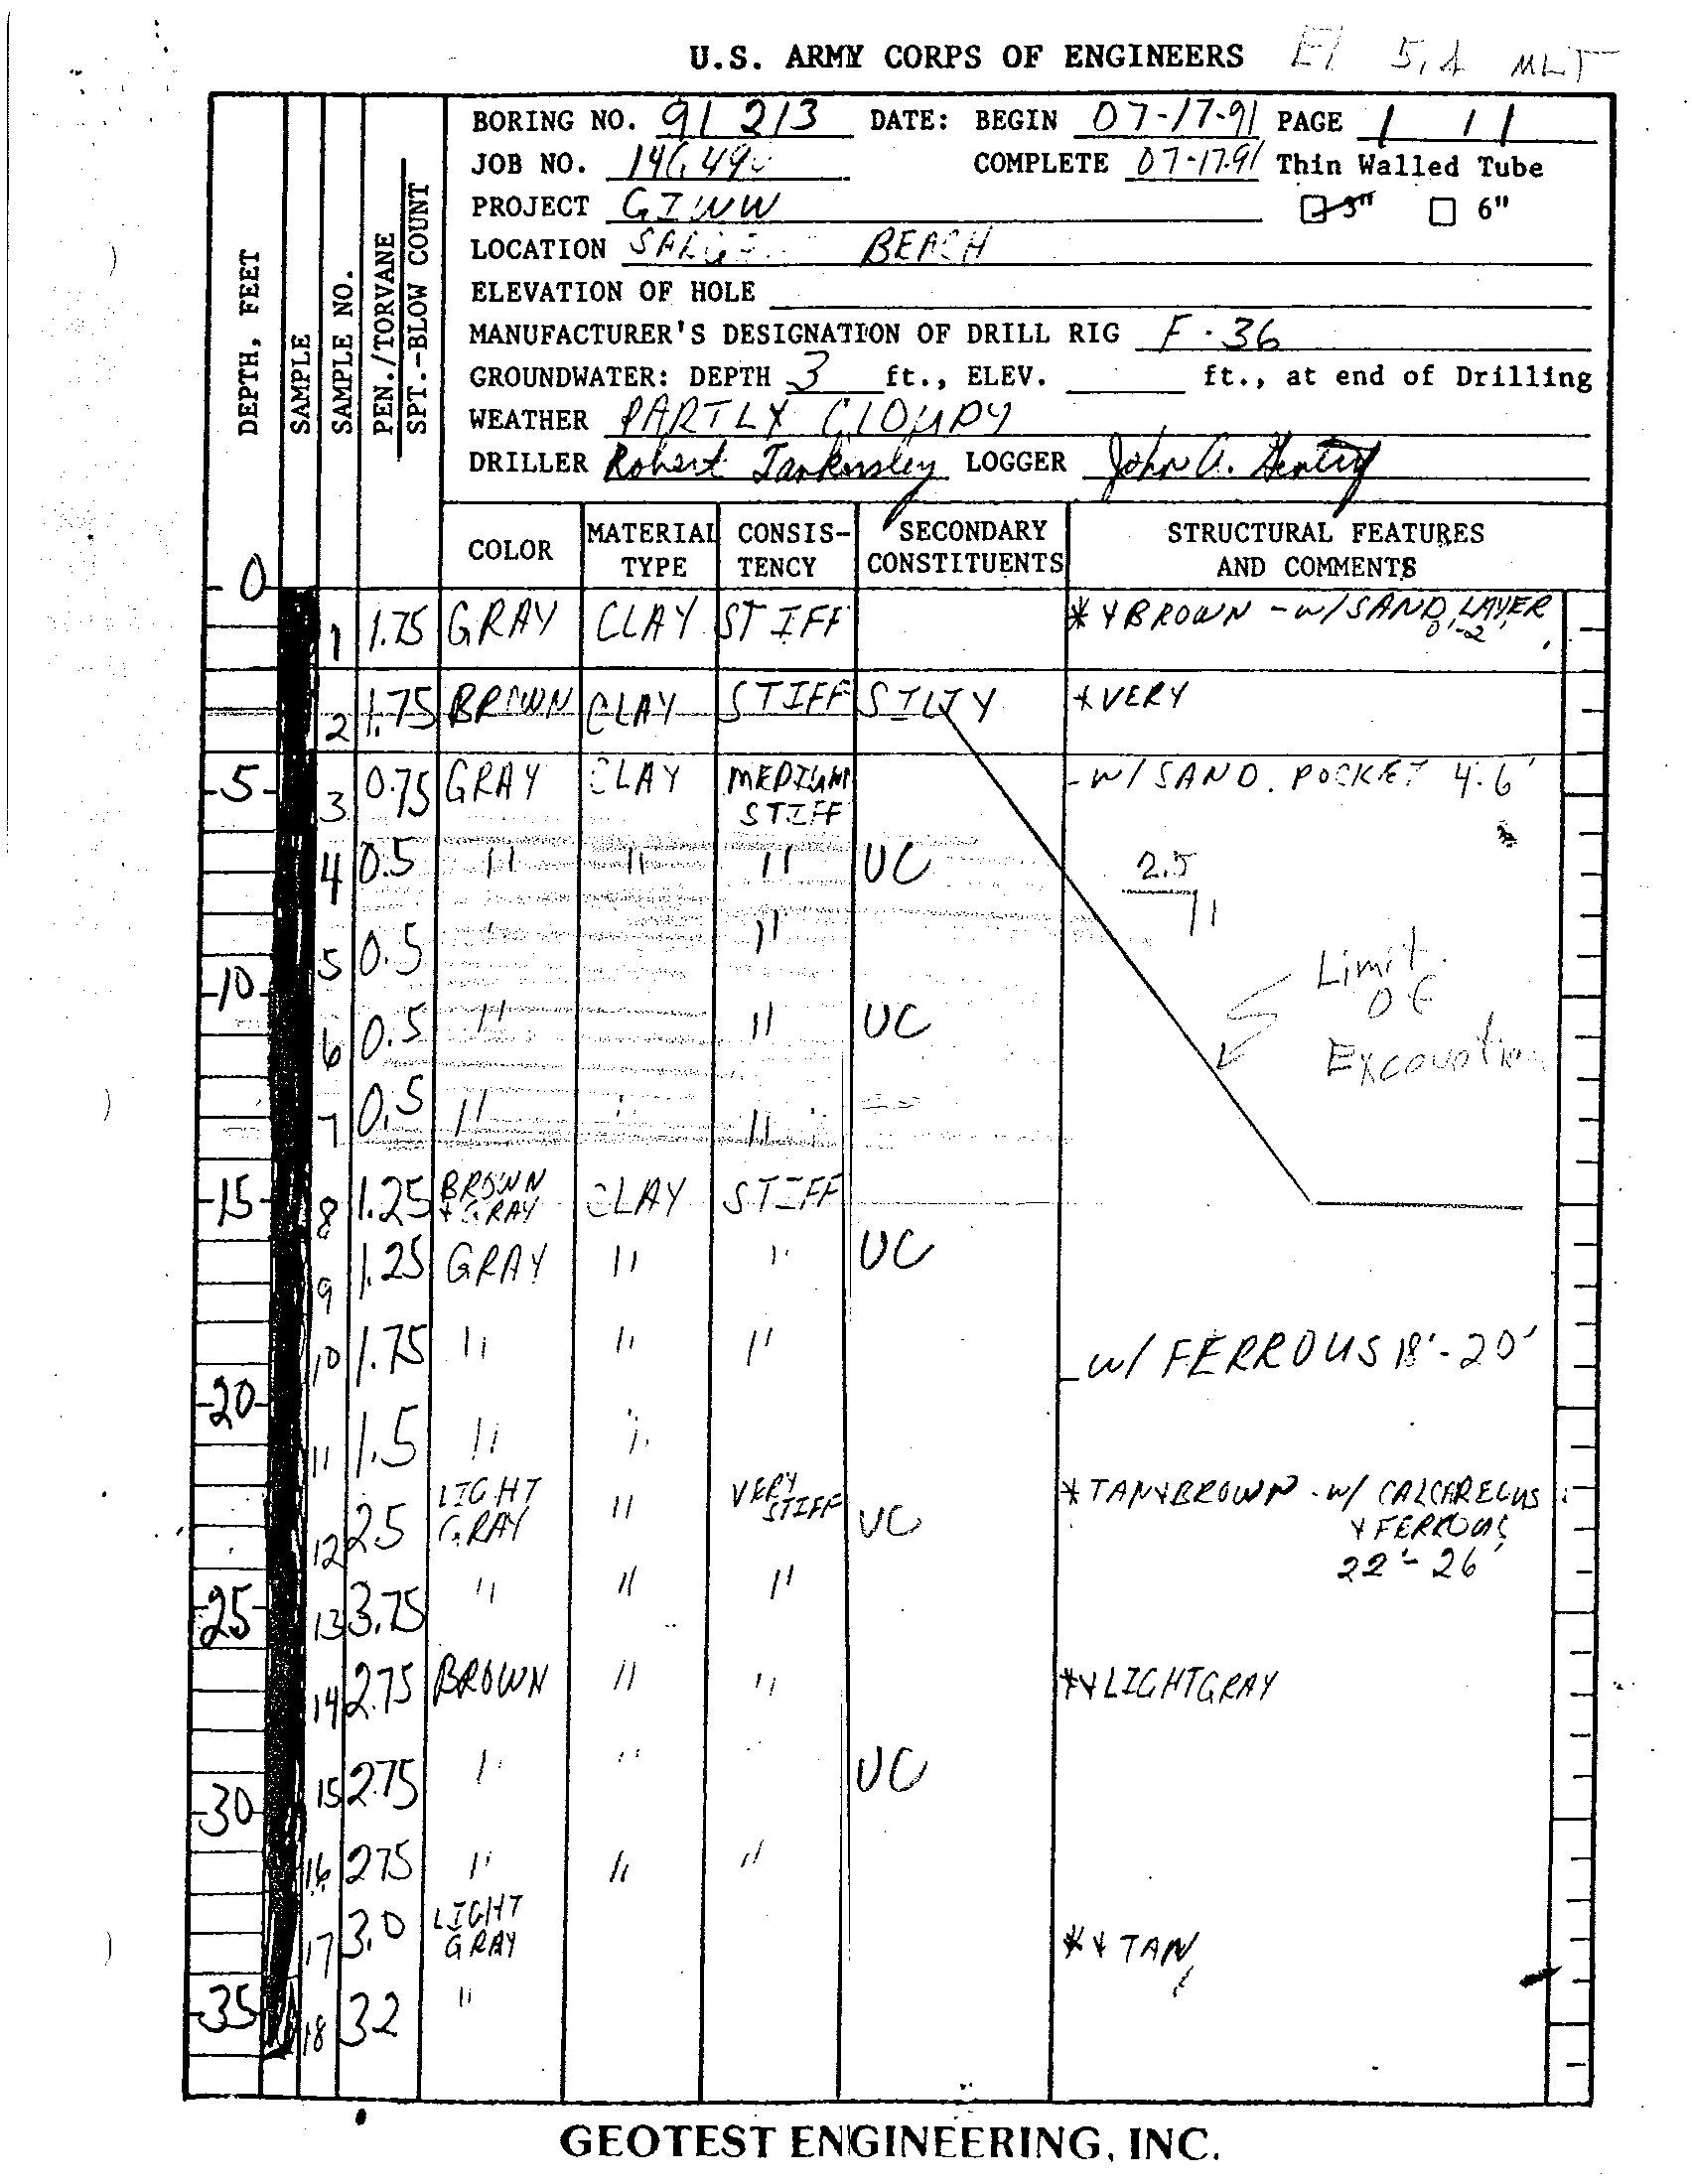 U.S. ARMY CORPS OF ENGINEERS El 5.4 MLT
BORING NO. 91 213 DATE: BEGIN 07-17-91 PAGE 1 / 1
JOB NO. COMPLETE 07-17-91 Thin Walled Tube
PROJECT GIWW 3" 6"
LOCATION BEACH
ELEVATION OF HOLE
MANUFACTURER'S DESIGNATION OF DRILL RIG F-36
GROUNDWATER: DEPTH 3 ft., ELEV. ft., at end of Drilling
WEATHER PARTLY CLOUDY
DRILLER Robert Tankersley LOGGER John A. Hentry
DEPTH, FEET
SAMPLE
SAMPLE NO.
PEN./TORVANE
SPT.-BLOW COUNT
COLOR MATERIAL TYPE CONSIS-TENCY SECONDARY CONSTITUENTS STRUCTURAL FEATURES AND COMMENTS
0
1 1.75 GRAY CLAY STIFF * & BROWN - W/ SAND LAYER 0'-2'
2 1.75 BROWN CLAY STIFF SILTY * VERY
5 3 0.75 GRAY CLAY MEDIUM STIFF - W/ SAND POCKET 4-6'
4 0.5 " " " UC 2.5
1
5 0.5 " "
Limit
of
Excavation
10
6 0.5 " " UC
7 0.5 " " "
15 8 1.25 BROWN & GRAY CLAY STIFF
9 1.25 GRAY " " UC
10 1.75 " " " - W/ FERROUS 18'-20'
20
11 1.5 " "
12 2.5 LIGHT GRAY " VERY STIFF UC * TAN & BROWN - W/ CALCAREOUS
& FERROUS
22'-26'
25 13 3.75 " " "
14 2.75 BROWN " " * & LIGHT GRAY
30 15 2.75 " " " UC
16 2.75 " " "
17 3.0 LIGHT GRAY * & TAN
35 18 3.2 "
GEOTEST ENGINEERING, INC.